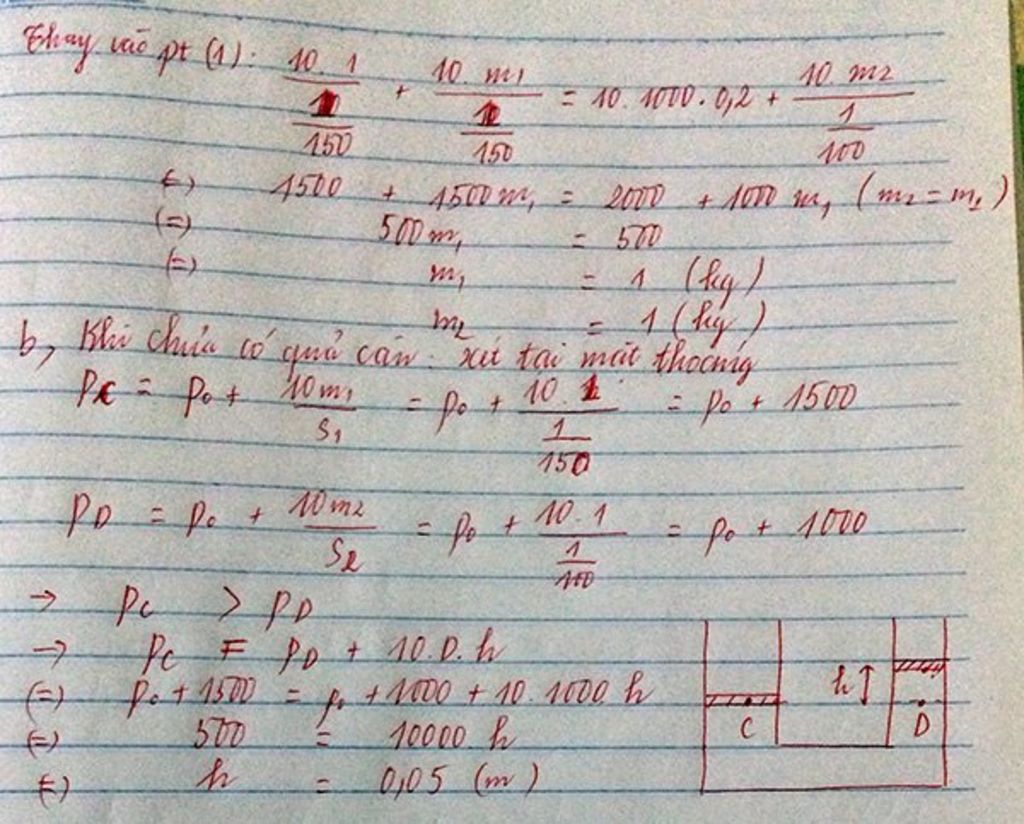 Thay vào pt (1): \frac{10.1}{\frac{1}{150}} + \frac{10.m_1}{\frac{1}{150}} = 10.1000.0,2 + \frac{10.m_2}{\frac{1}{100}}
(=) 1500 + 1500m_1 = 2000 + 1000 m_1 (m_2 = m_1)
(=) 500m_1 = 500
(=) m_1 = 1 (kg)
m_2 = 1 (kg)
b, Khi chưa có quả cân. xét tại mặt thoáng
P_C = P_0 + \frac{10m_1}{S_1} = P_0 + \frac{10.1}{\frac{1}{150}} = P_0 + 1500
P_D = P_0 + \frac{10m_2}{S_2} = P_0 + \frac{10.1}{\frac{1}{100}} = P_0 + 1000
→ P_C > P_D
→ P_C = P_D + 10.D.h
(=) P_0 + 1500 = P_0 + 1000 + 10.1000.h
(=) 500 = 10000.h
(=) h = 0,05 (m)
h
C
D